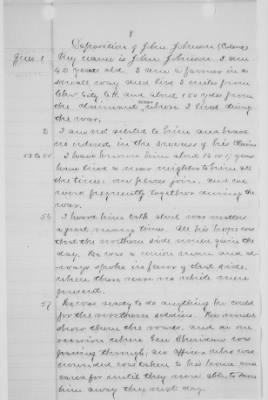 8
Deposition of John Johnson (Colored)
Ques. 1 My name is John Johnson. I am
62 years old. I am a farmer in a
small way and live 3 miles from
City C.H. and about 150 yds from
the claimant, where I lived during
the war.
2 I am not related to him and have
no interest in the success of his Claim
I have known him about 16 or 17 years
have lived a near neighbor to him all
the time. our places join, and we
were frequently together during the
war.
56 I heard him talk about war matters
a great many times. All his hope was
that the northern side would gain the
day. He was a union man and al-
ways spoke in favor of that side,
when there were no rebels were
present.
57 He was ready to do anything he could
for the northern soldiers. He would
show them the roads, and on one
occasion when Gen Sheridan was
passing through, an officer who was
wounded was taken to his house and
cared for until they were able to take
him away they next day.